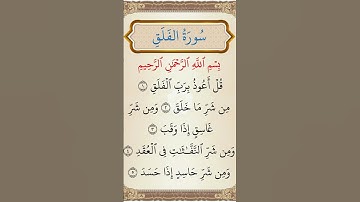 سُورَةُ الفَلَقِ
بِسْمِ ٱللَّهِ ٱلرَّحْمَٰنِ ٱلرَّحِيمِ
قُلْ أَعُوذُ بِرَبِّ ٱلْفَلَقِ ١
مِن شَرِّ مَا خَلَقَ ٢ وَمِن شَرِّ
غَاسِقٍ إِذَا وَقَبَ ٣
وَمِن شَرِّ ٱلنَّفَّٰثَٰتِ فِى ٱلْعُقَدِ ٤
وَمِن شَرِّ حَاسِدٍ إِذَا حَسَدَ ٥